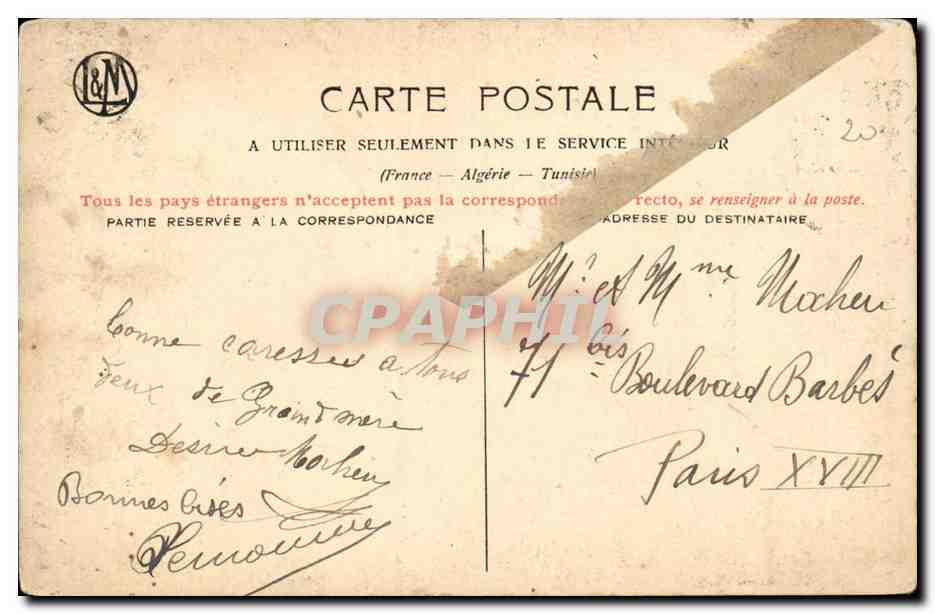 L&M
CARTE POSTALE
20
A UTILISER SEULEMENT DANS LE SERVICE INTÉRIEUR
(France — Algérie — Tunisie)
Tous les pays étrangers n'acceptent pas la correspond recto, se renseigner à la poste.
PARTIE RÉSERVÉE A LA CORRESPONDANCE
ADRESSE DU DESTINATAIRE
bonne caresses a tous
deux de Grand mère
Desire Mocheu
Bonnes bises
Mr et Mme Mocheu
71 bis Boulevard Barbés
Paris XVIII
CPAPHIL